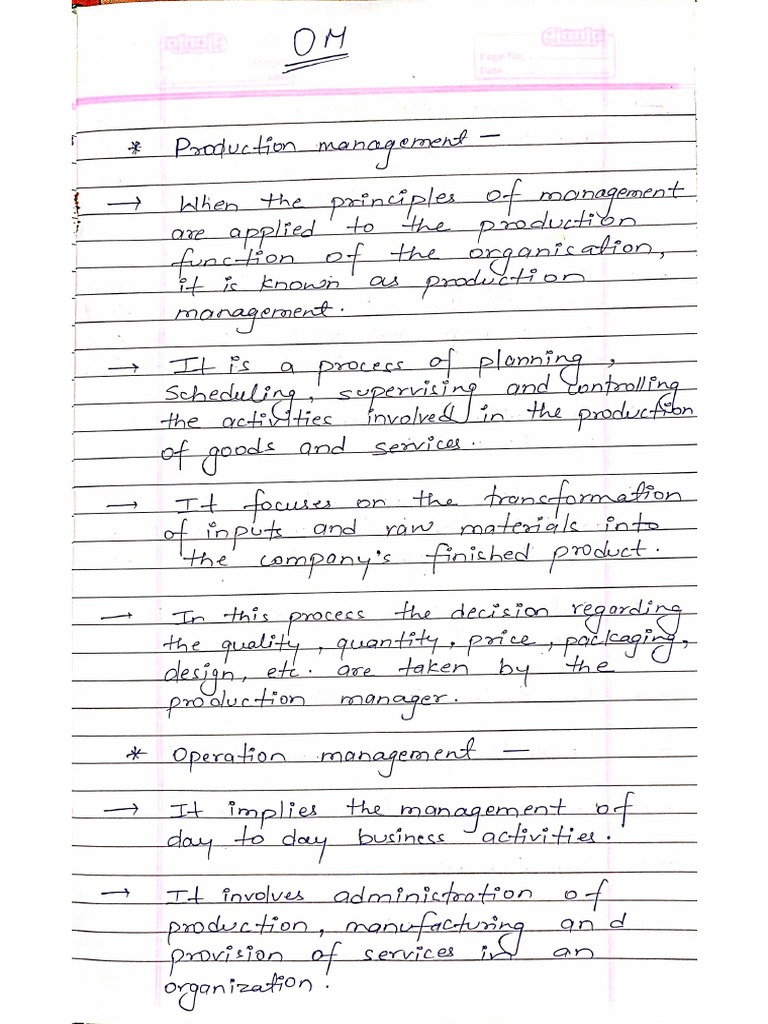 OM
* Production management —
→ When the principles of management
are applied to the production
function of the organisation,
it is known as production
management.
→ It is a process of planning,
scheduling, supervising and controlling
the activities involved in the production
of goods and services.
→ It focuses on the transformation
of inputs and raw materials into
the company's finished product.
→ In this process the decision regarding
the quality, quantity, price, packaging,
design, etc. are taken by the
production manager.
* Operation management —
→ It implies the management of
day to day business activities.
→ It involves administration of
production, manufacturing and
provision of services in an
organization.